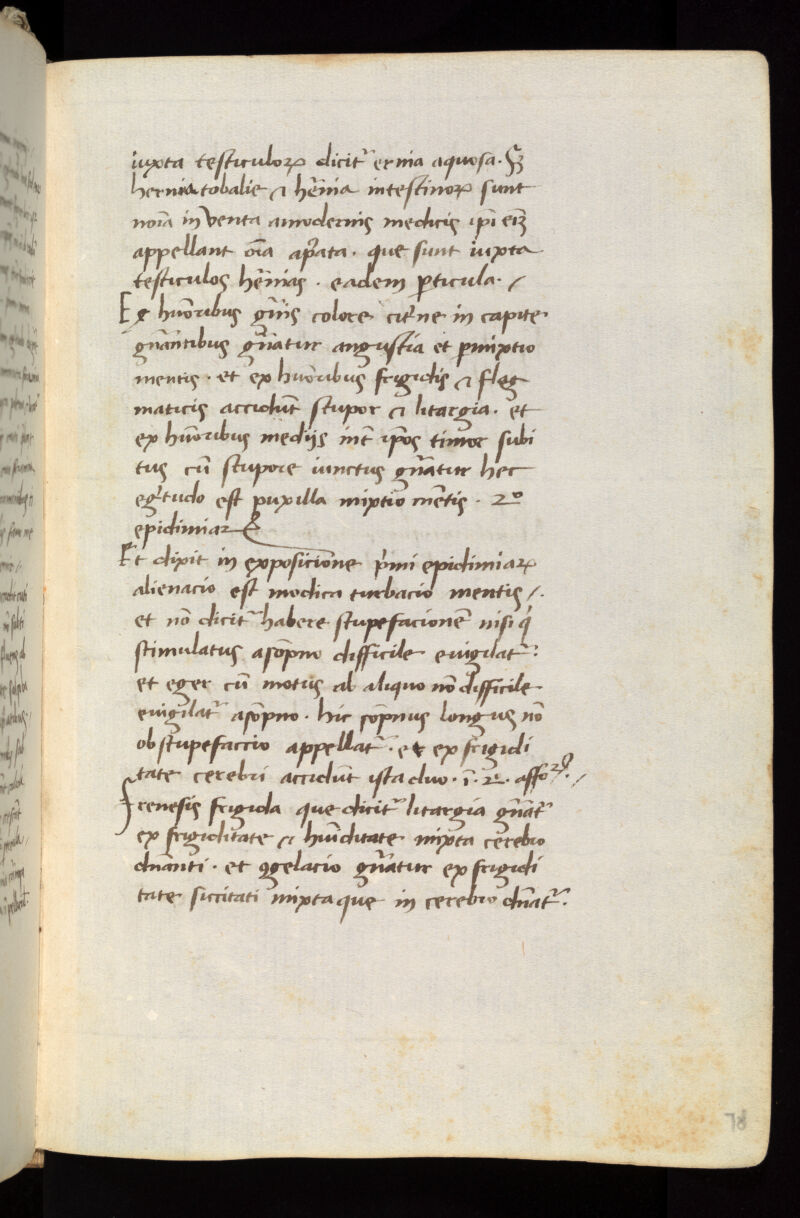 iuxta testiculoꝝ dicit᷑ ernia aquosa. Sꝫ
hernia tobalie ⁊ hẽnia intestinoꝝ sunt
noĩa inventa amodernis medicis ip̃i eĩ
appellant oĩa ap̃ata. que sunt iuxta
testiculos hẽnias. eadem ꝑticula. /
Ex hũoribus gñis colore citⁱne in capite
gñantibus gñatur angustia et ꝑmixtio
mentis. et ex hũoribus frigidis ⁊ fleg
maticis accidũt stupor ⁊ litargia. et
ex hũoribus medijs int̃ ip̃os timor subi
tus cũ stupore iunctus gñatur hec
egⁱtudo est puxilla mixtio mẽtis. 2º
epidimiaꝝ
Et dixit in exposicione pⁱmi epidimiaꝝ
alienacio est modica turbacio mentis /.
et nõ dicit᷑ habere stupefacionẽ nisi qⁱ
stimulatus asõpno difficile euigilat᷑:
et eger cũ motus ab aliquo nõ difficile
euigilat᷑ asõpno. hic sõpnus longus nõ
obstupefaccio appellat᷑. et ex frigidi
tate cerebri accidũt ista duo. i. 2ᵉ. affoꝝ. /
Frenesis frigida que dicit᷑ litargia gñat᷑
ex frigiditate ⁊ hũiditate mixta cerebro
dñanti. et ꝯgelacio gñatur ex frigidi
tate siccitati mixta que in cerebro dñat᷑.
78